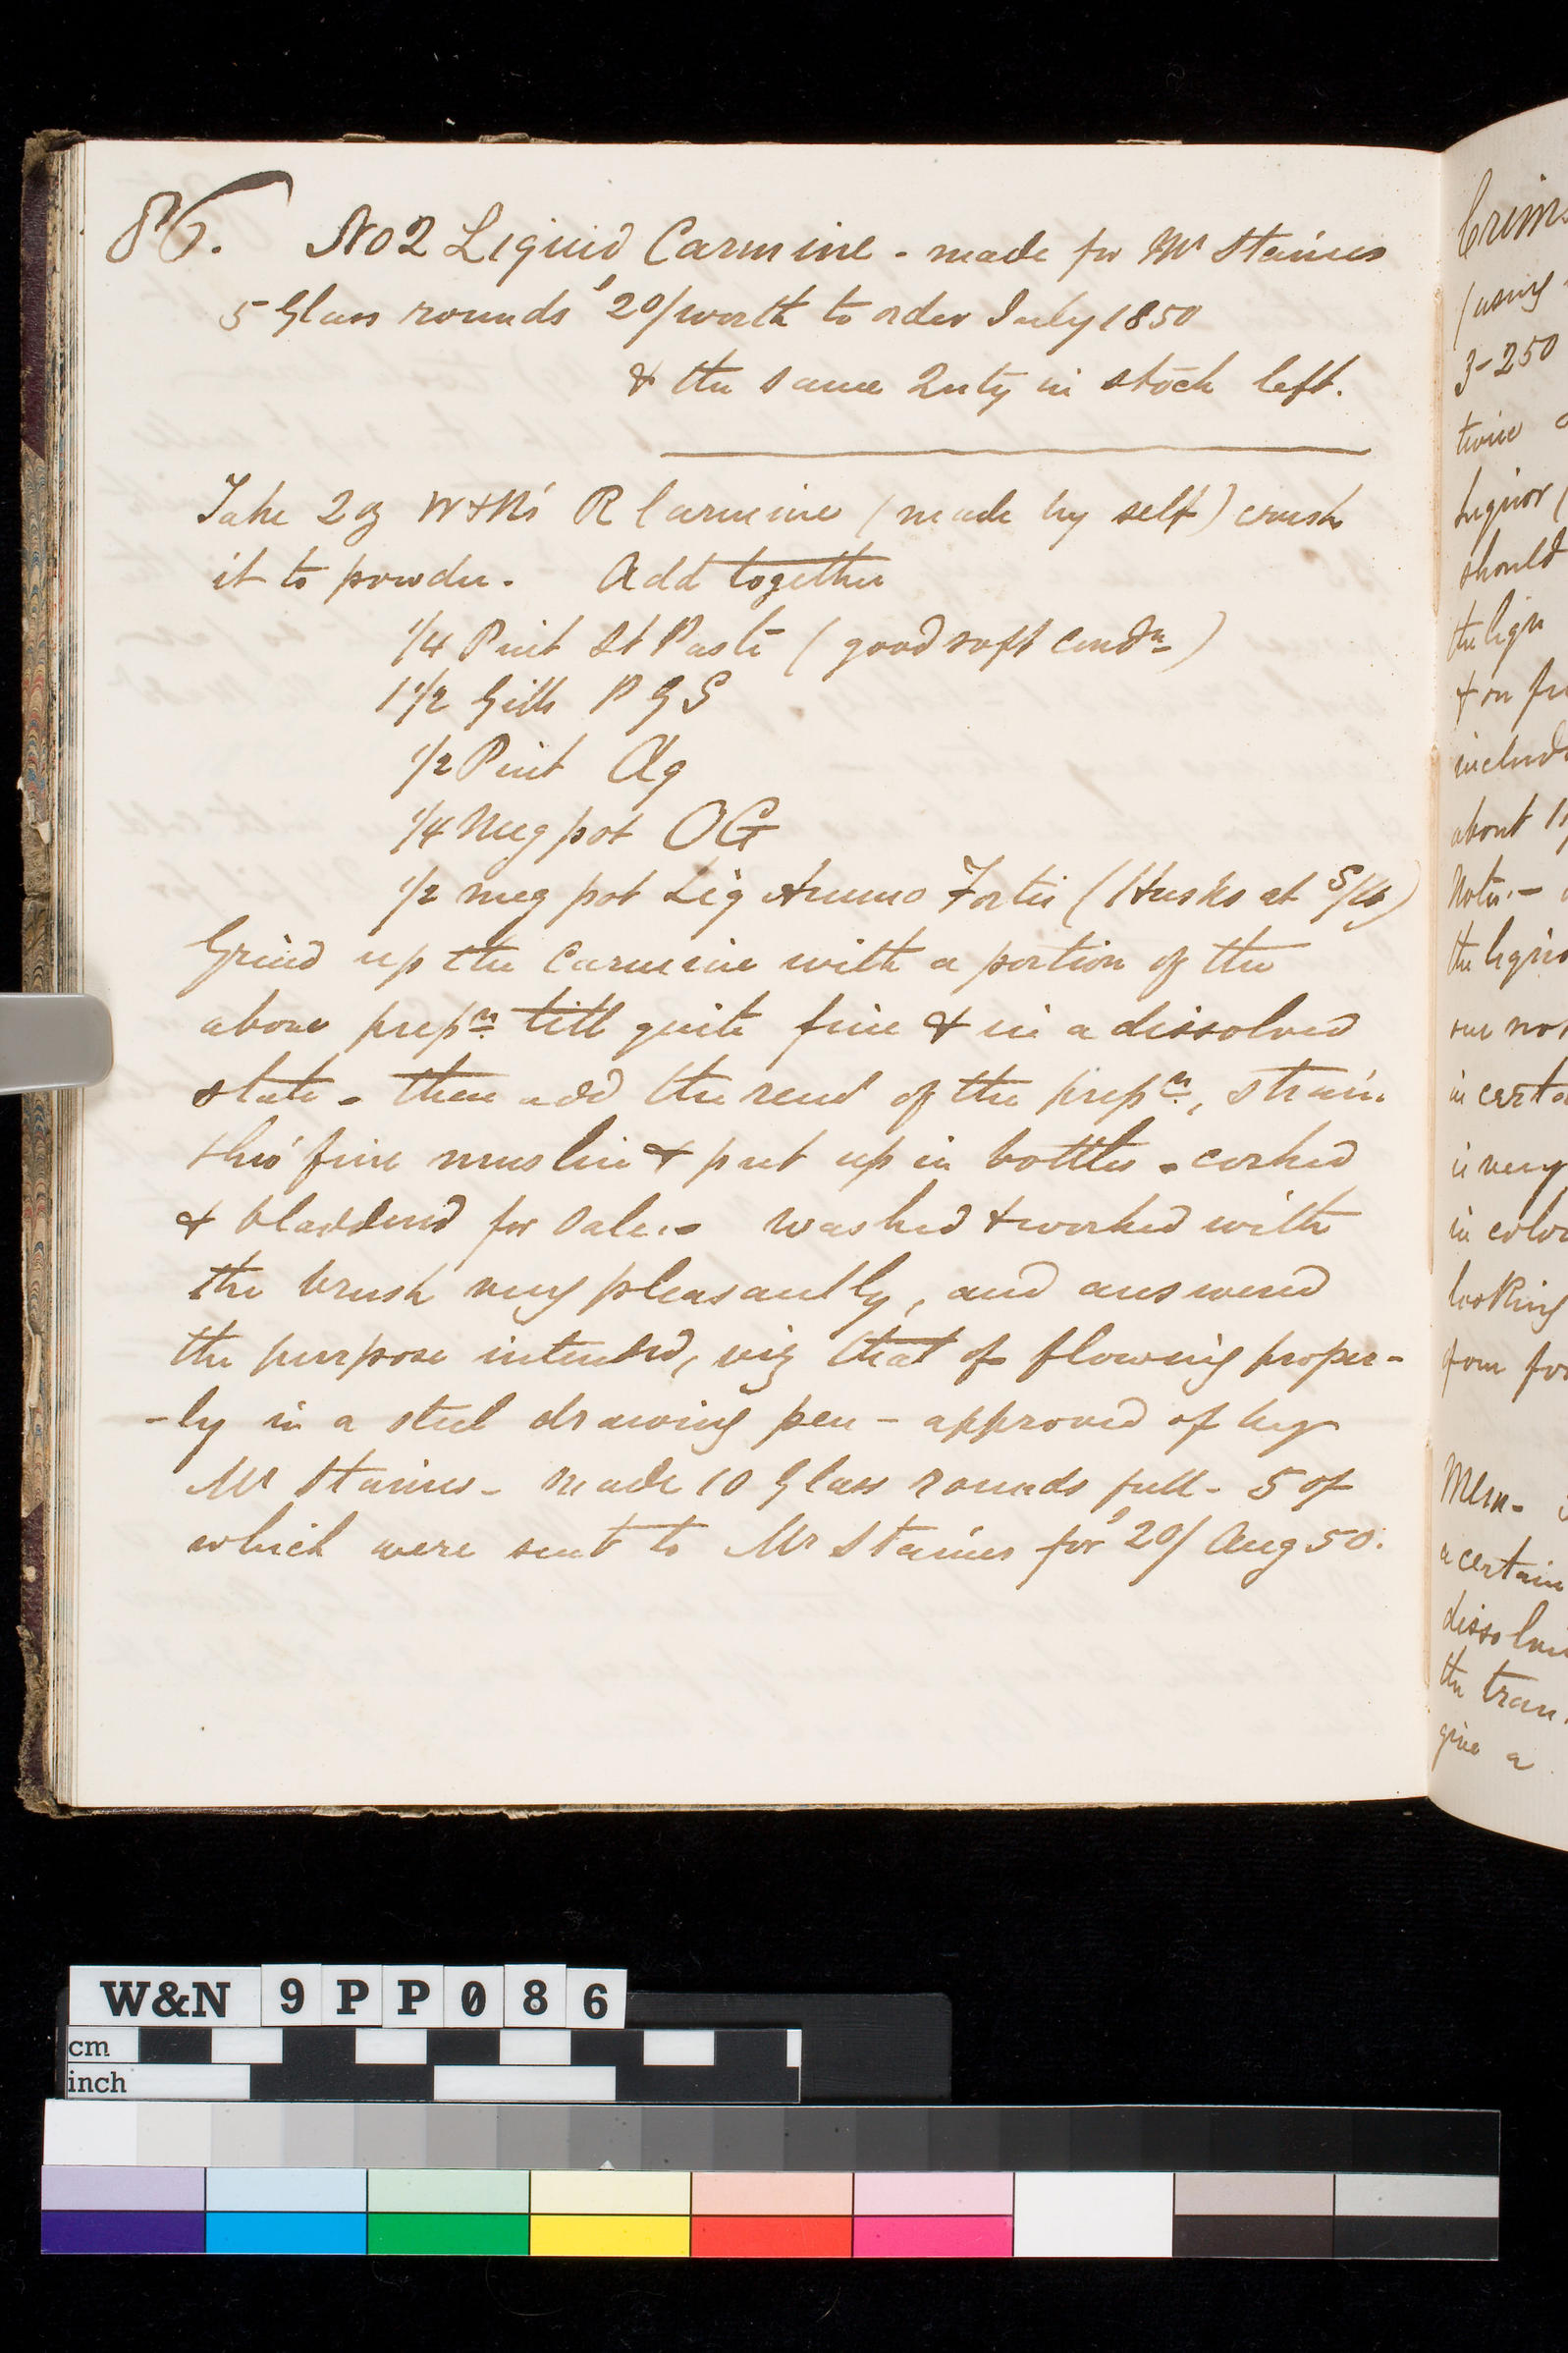 86. No 2 Liquid Carmine - made for Mr Staines
5 Glass rounds 20/ worth to order July 1850
& the same Qnty in stock left.
Take 2 oz W&N's R Carmine (made by self) crush
it to powder. Add together
1/4 Pint St Paste (good soft condn)
1 1/2 Gills P G S
1/2 Pint Aq
1/4 Meg pot OG
1/2 meg pot Liq Ammo Fortis (Husks at
Grind up the Carmine with a portion of the
above prepn. till quite fine & in a dissolved
state - then add the rend of the prepn., strain
thro' fine muslin & put up in bottles - corked
& bladdered for sale. - Washed & worked with
the brush very pleasantly, and answered
the purpose intended, viz that of flowing proper-
-ly in a steel drawing pen - approved of by
Mr Staines - made 10 Glass rounds full - 5 of
which were sent to Mr Staines for 20/ Aug 50.
Crim
(using
3-250
twice
Liquor (
should
the liqu
& on
includ
about
Notes. -
the liquo
not
in certa
is very
in colou
looking
from for
Mem-
a certain
dissolve
the tran
give a
W&N 9PP086
cm
inch